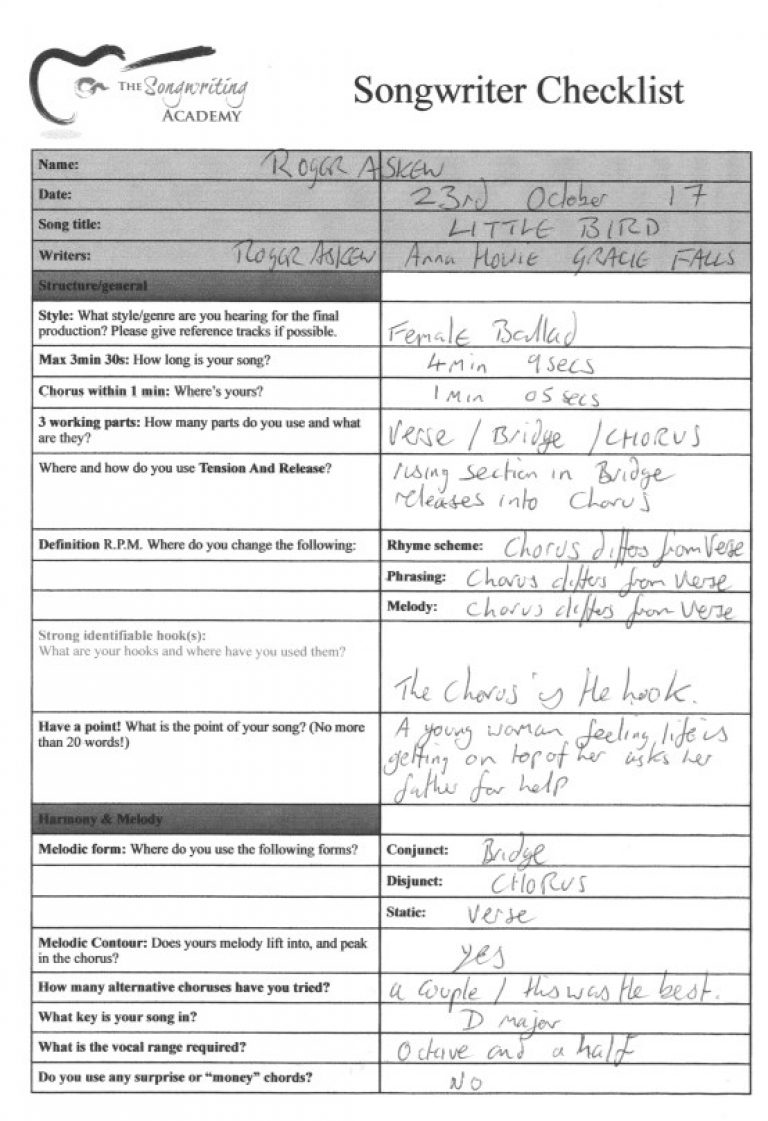 THE Songwriting
ACADEMY
Songwriter Checklist
Name: ROGER ASKEW
Date: 23rd October 17
Song title: LITTLE BIRD
Writers: ROGER ASKEW Anna HOWIE GRACIE FALLS
Structure/general
Style: What style/genre are you hearing for the final
production? Please give reference tracks if possible.
Female Ballad
Max 3min 30s: How long is your song? 4 min 9 secs
Chorus within 1 min: Where's yours? 1 Min 05 secs
3 working parts: How many parts do you use and what
are they?
Verse / Bridge / CHORUS
Where and how do you use Tension And Release?
rising section in Bridge
releases into Chorus
Definition R.P.M. Where do you change the following: Rhyme scheme: Chorus differs from Verse
Phrasing: Chorus differs from Verse
Melody: Chorus differs from Verse
Strong identifiable hook(s):
What are your hooks and where have you used them?
The Chorus is the hook.
Have a point! What is the point of your song? (No more
than 20 words!)
A young woman feeling life is
getting on top of her asks her
father for help
Harmony & Melody
Melodic form: Where do you use the following forms? Conjunct: Bridge
Disjunct: CHORUS
Static: Verse
Melodic Contour: Does yours melody lift into, and peak
in the chorus?
yes
How many alternative choruses have you tried? a couple / this was the best.
What key is your song in? D major
What is the vocal range required? Octave and a half
Do you use any surprise or "money" chords? NO